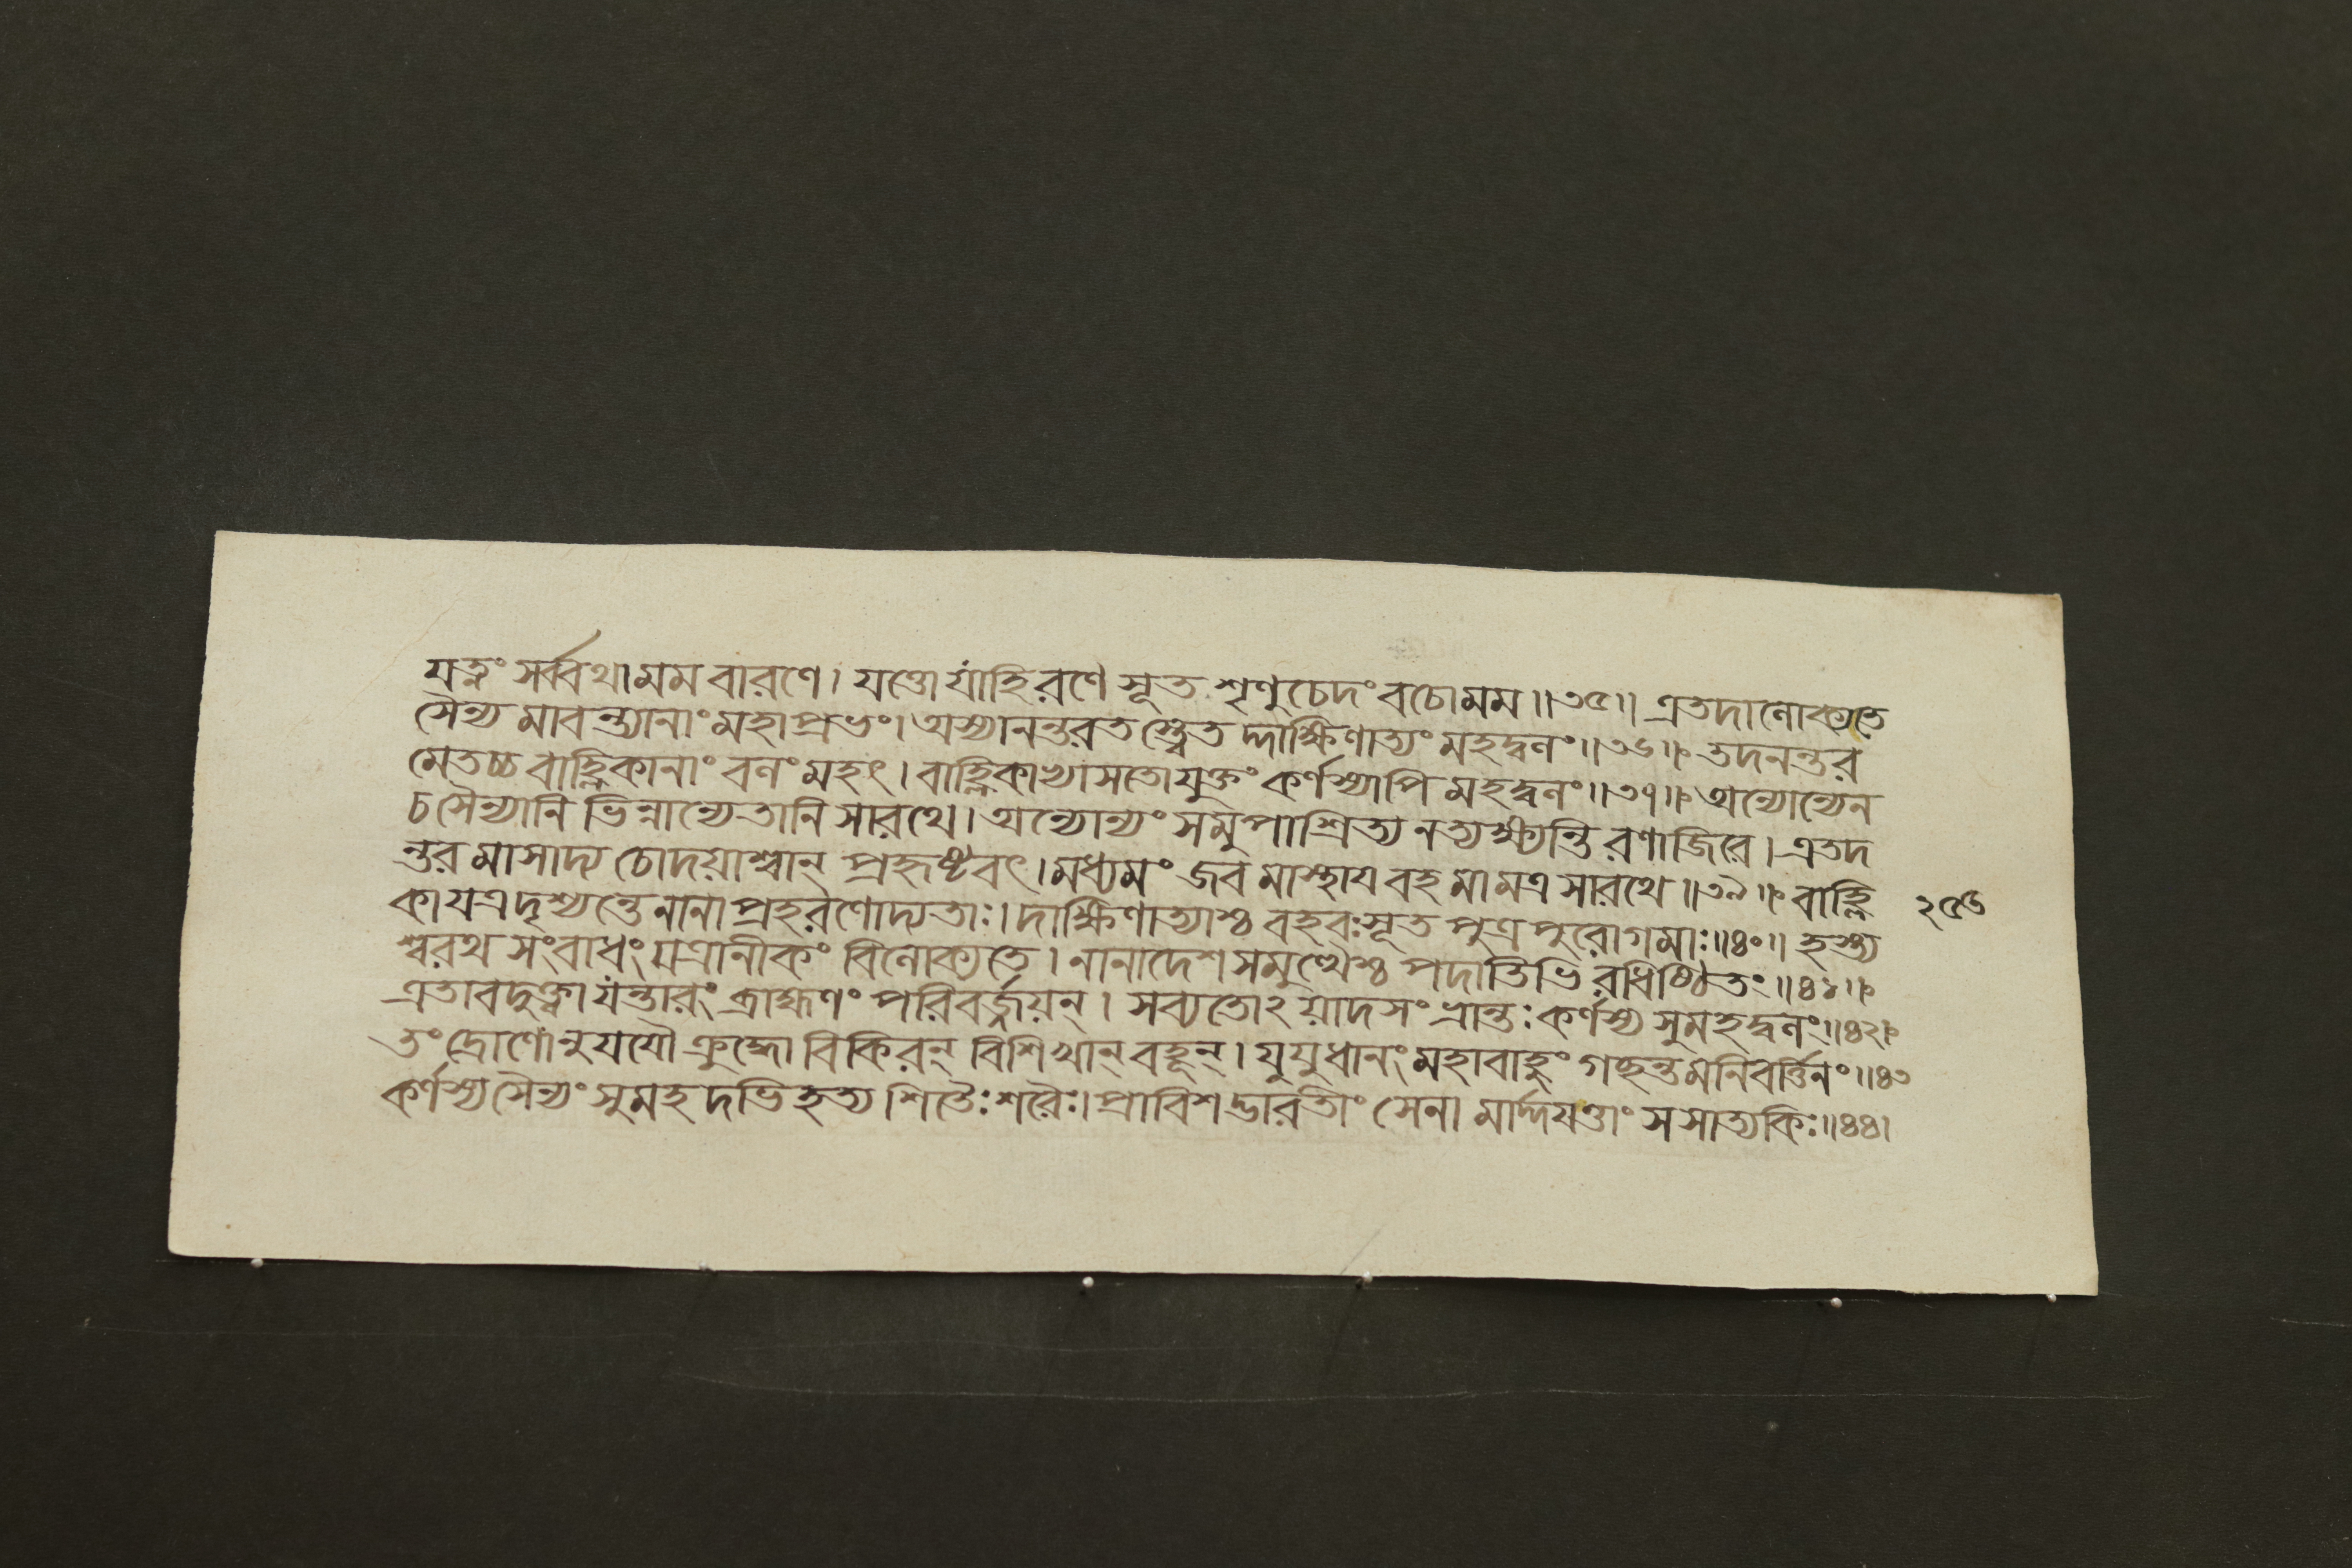 যত্নং সর্ব্বথা মম বারণে। যত্তো যাহি রণে সূত শৃণু চেদং বচো মম॥৩৫॥ এতদালোক্যতে
সৈন্য মাবন্ত্যানাং মহাপ্রভং। অস্যানন্তরতস্ত্বেত দ্দাক্ষিণাত্যং মহদ্বলং॥৩৬॥ তদনন্তর
মেতচ্চ বাহ্লিকানাং বলং মহৎ। বাহ্লিকাভ্যাসতো যুক্তং কর্ণস্যাপি মহদ্বলং॥৩৭॥ অন্যোন্যেন
চ সৈন্যানি ভিন্নান্যেতানি সারথে। অন্যোন্যং সমুপাশ্রিত্য ন ত্যক্ষ্যন্তি রণাজিরে। এতদ
ন্তর মাসাদ্য চোদয়াশ্বান্ প্রহৃষ্টবৎ। মধ্যমং জব মাস্থায বহ মামত্র সারথে॥৩৯॥ বাহ্লি
কা যত্র দৃশ্যন্তে নানা প্রহরণোদ্যতাঃ। দাক্ষিণাত্যাশ্চ বহবঃ সূত পুত্র পুরোগমাঃ॥৪০॥ হস্ত্য
শ্বরথ সংবাধং যত্রানীকং বিলোক্যতে। নানাদেশ সমুত্থৈশ্চ পদাতিভি রধিষ্ঠিতং॥৪১॥
এতাবদুক্ত্বা যন্তারং ব্রাহ্মণং পরিবর্জ্জয়ন্। সব্যতোঽয়াদসংভ্রান্তঃ কর্ণস্য সুমহদ্বলং॥৪২॥
তং দ্রোণোনুযযৌ ক্রুদ্ধো বিকিরন্ বিশিখান্ বহূন্। যুযুধানং মহাবাহুং গচ্ছন্তমনিবর্ত্তিনং॥৪৩
কর্ণস্য সৈন্যং সুমহদভিহত্য শিতৈঃ শরৈঃ। প্রাবিশদ্ভারতীং সেনা মার্দ্দযত্তাং স সাত্যকিঃ॥৪৪॥
২৫৬